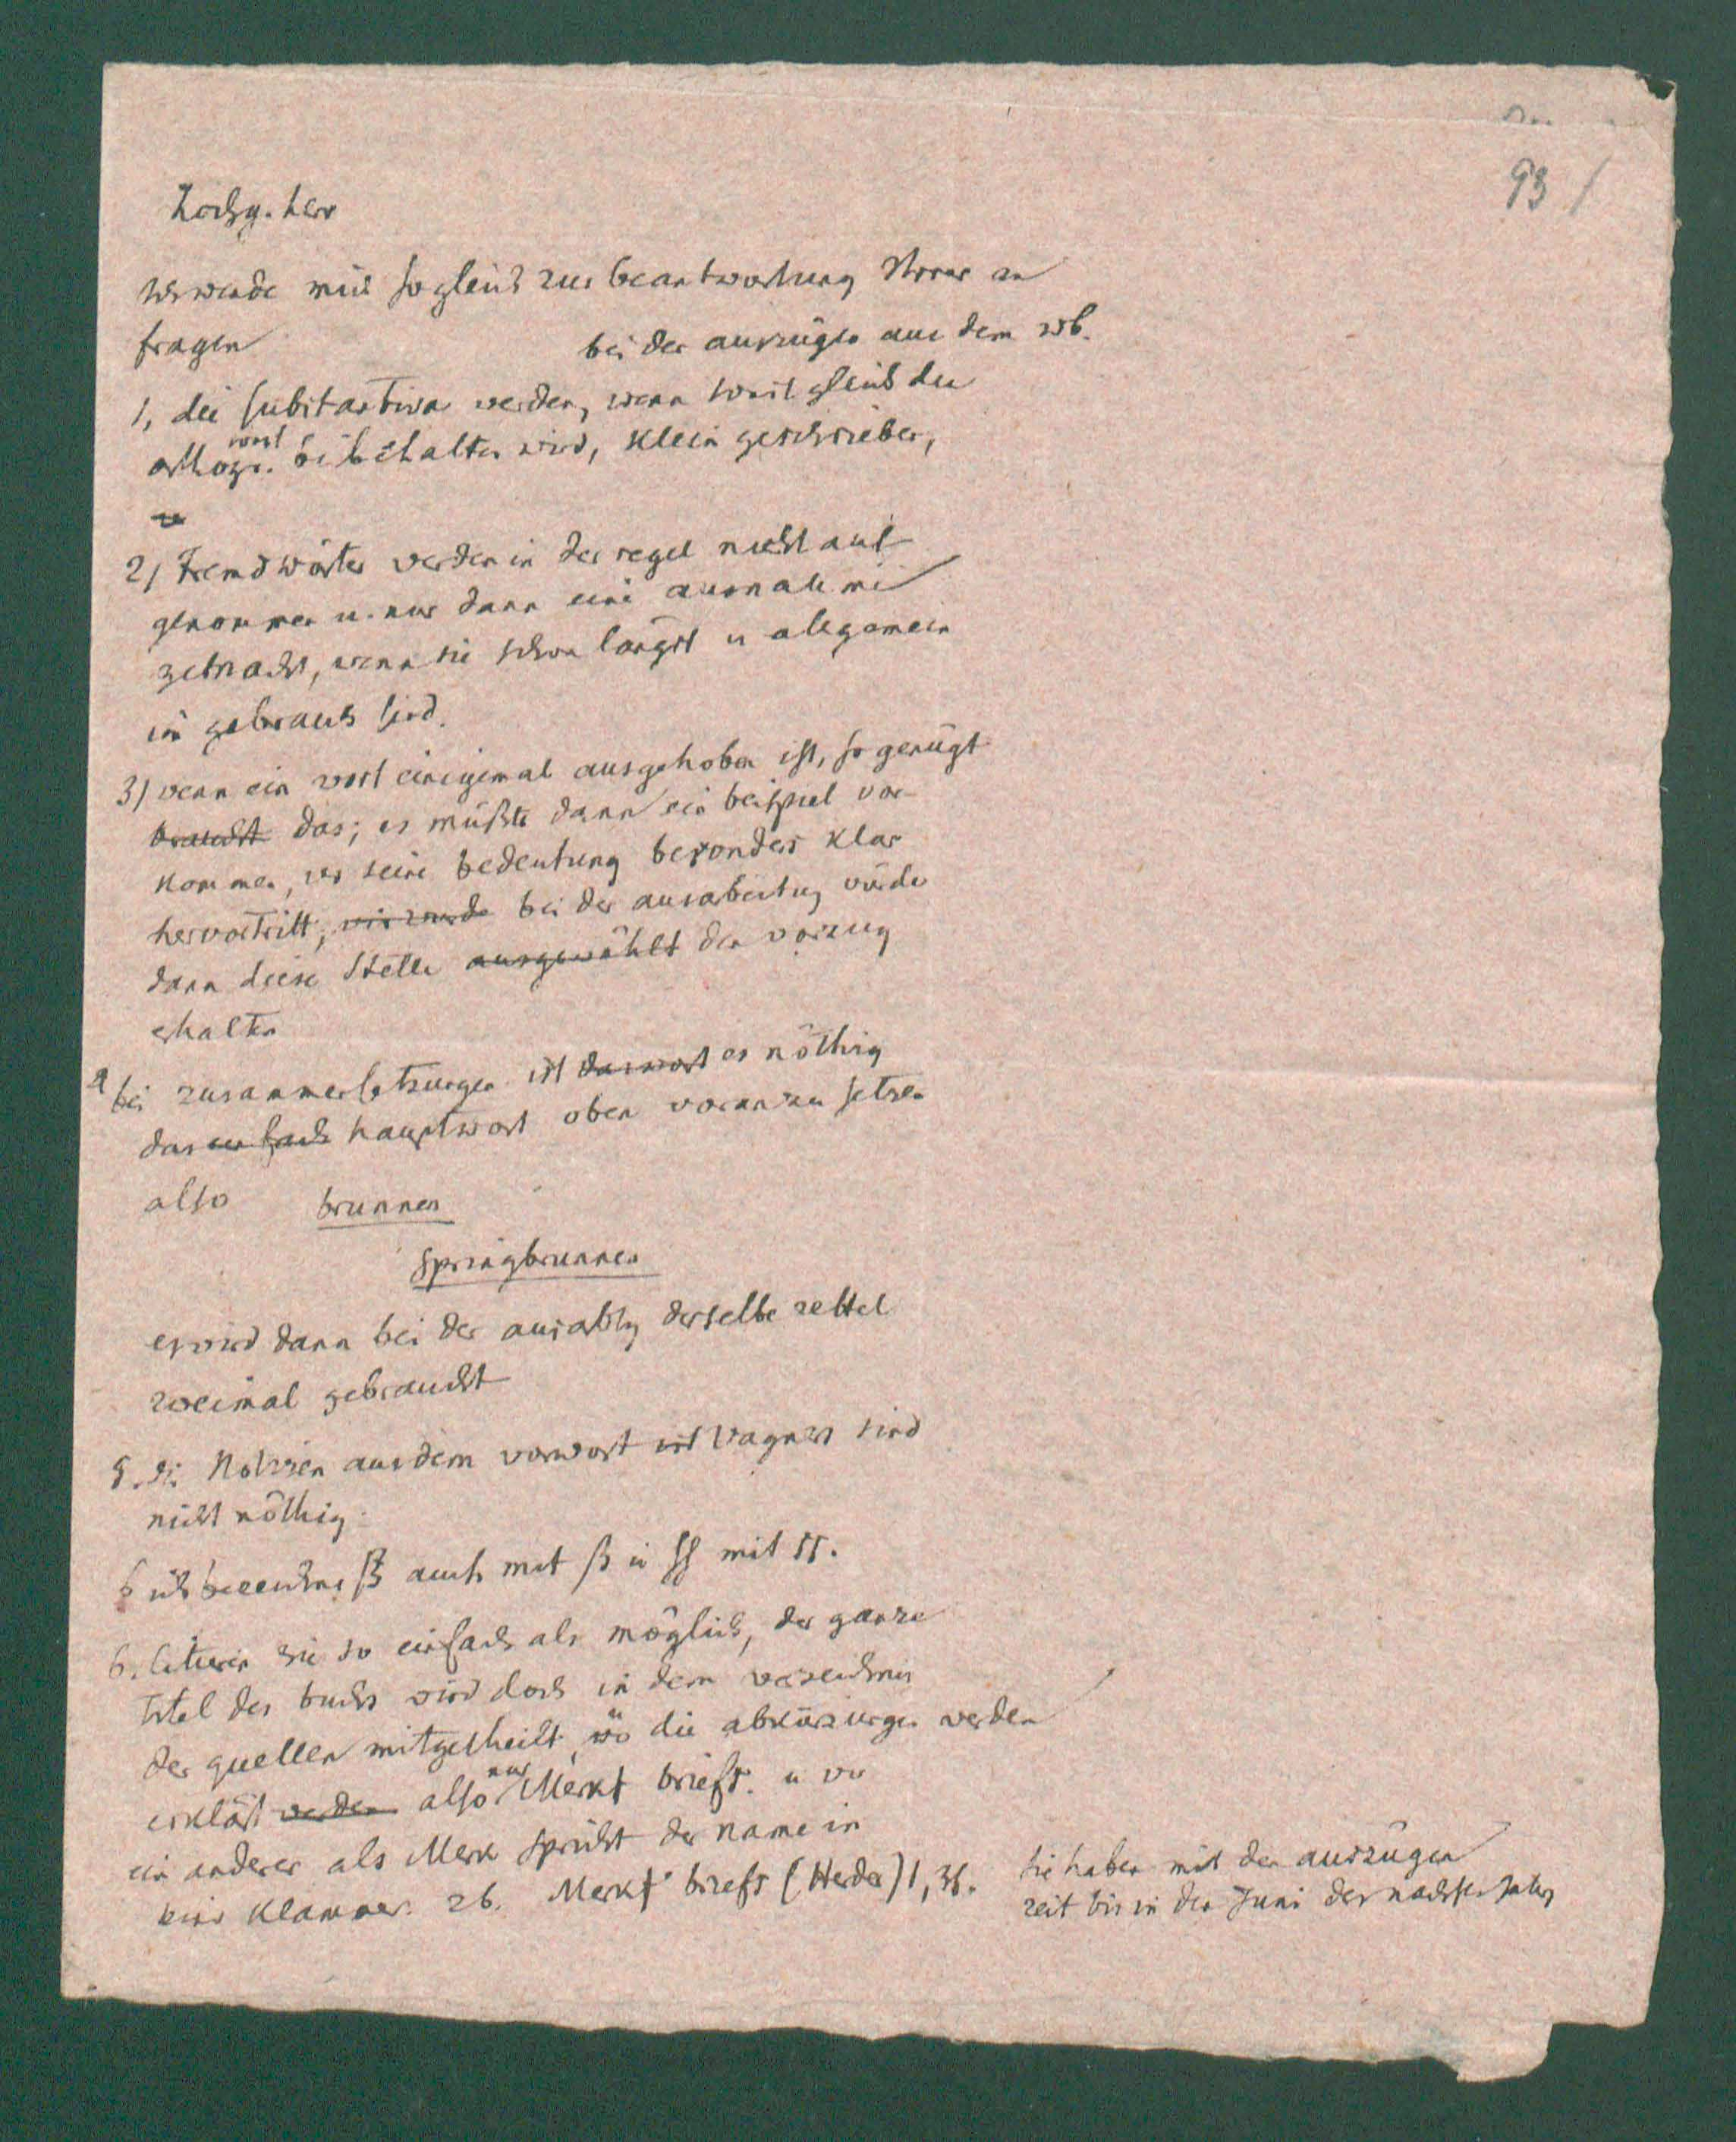 93
Hochg. herr
Ich wende mich sogleich zur beantwortung Ihrer an
fragen
bei der auszüge aus dem wb.
1, die substantiva werden, wenn sonst gleich die
orthogr. sonst beibehalten wird, klein geschrieben,
2) Fremdwörter werden in der regel nicht auf
genommen u. nur dann eine ausnahme
gemacht, wenn sie schon längst u allgemein
im gebrauch sind.
3) wenn ein wort einigemal ausgehoben ist, so genügt
braucht das; es müßte dann ein beispiel vor
kommen, wo seine bedeutung besonders klar
hervortritt, bei der ausarbeitung würde
dann diese Stelle ausgewählt den vorzug
erhalten
4 bei zusammensetzungen ist das wort es nöthig
das einfach hauptwort oben voranzusetzen
also brunnen
springbrunnen
es wird dann bei der ausarbtg derselbe zettel
zweimal gebraucht
5. die Notizen aus dem vorwort ist Wagners sind
nicht nöthig.
6 ich bezeichne ß auch mit ß u ſſ mit ss.
6. Citieren sie so einfach als möglich, der ganze
titel des buchs wird doch in dem verzeichnis
der quellen mitgetheilt, wo die abkürzungen werden
erklärt werden also nur Merks briefs. u wo
ein anderer als Merk spricht der name in
eine Klammer. zb. Merks briefs (Herder) 1, 36.
sie haben mit den auszügen
zeit bis in den Juni des nächsten jahrs